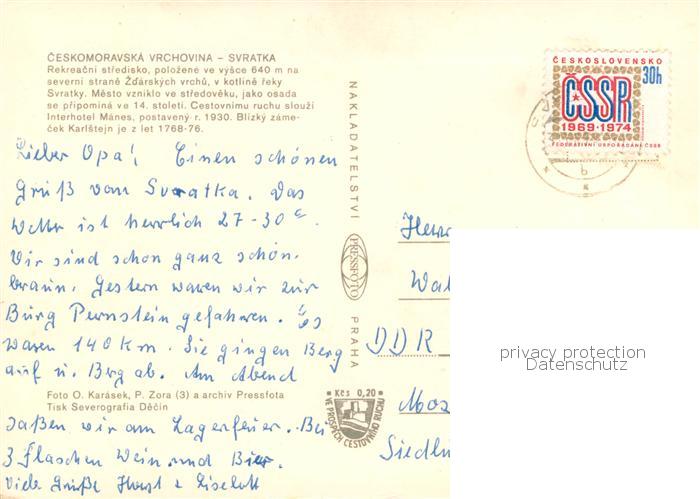 ČESKOMORAVSKÁ VRCHOVINA – SVRATKA
Rekreační středisko, položené ve výšce 640 m na
severní straně Žďárských vrchů, v kotlině řeky
Svratky. Město vzniklo ve středověku, jako osada
se připomíná ve 14. století. Cestovnímu ruchu slouží
Interhotel Mánes, postavený r. 1930. Blízký záme-
ček Karlštejn je z let 1768-76.
Lieber Opa! Einen schönen
Gruß von Svratka. Das
Wetter ist herrlich 27-30°.
Wir sind schon ganz schön
braun. Gestern waren wir zur
Burg Pernstein gefahren. Es
waren 140 km. Sie gingen Berg
auf u. Berg ab. Am Abend
Foto O. Karásek, P. Zora (3) a archiv Pressfota
Tisk Severografia Děčín
saßen wir am Lagerfeuer. Bei
3 Flaschen Wein und Bier.
Viele Grüße Horst & Liselott
NAKLADATELSTVÍ
PRESSFOTO
PRAHA
Kčs 0,20
VE PROSPĚCH CESTOVNÍHO RUCHU
ČESKOSLOVENSKO
30h
ČSSR
1969·1974
FEDERATIVNÍ USPOŘÁDÁNÍ ČSSR
Herr
Wal
DDR
Mos
Siedlu
privacy protection
Datenschutz